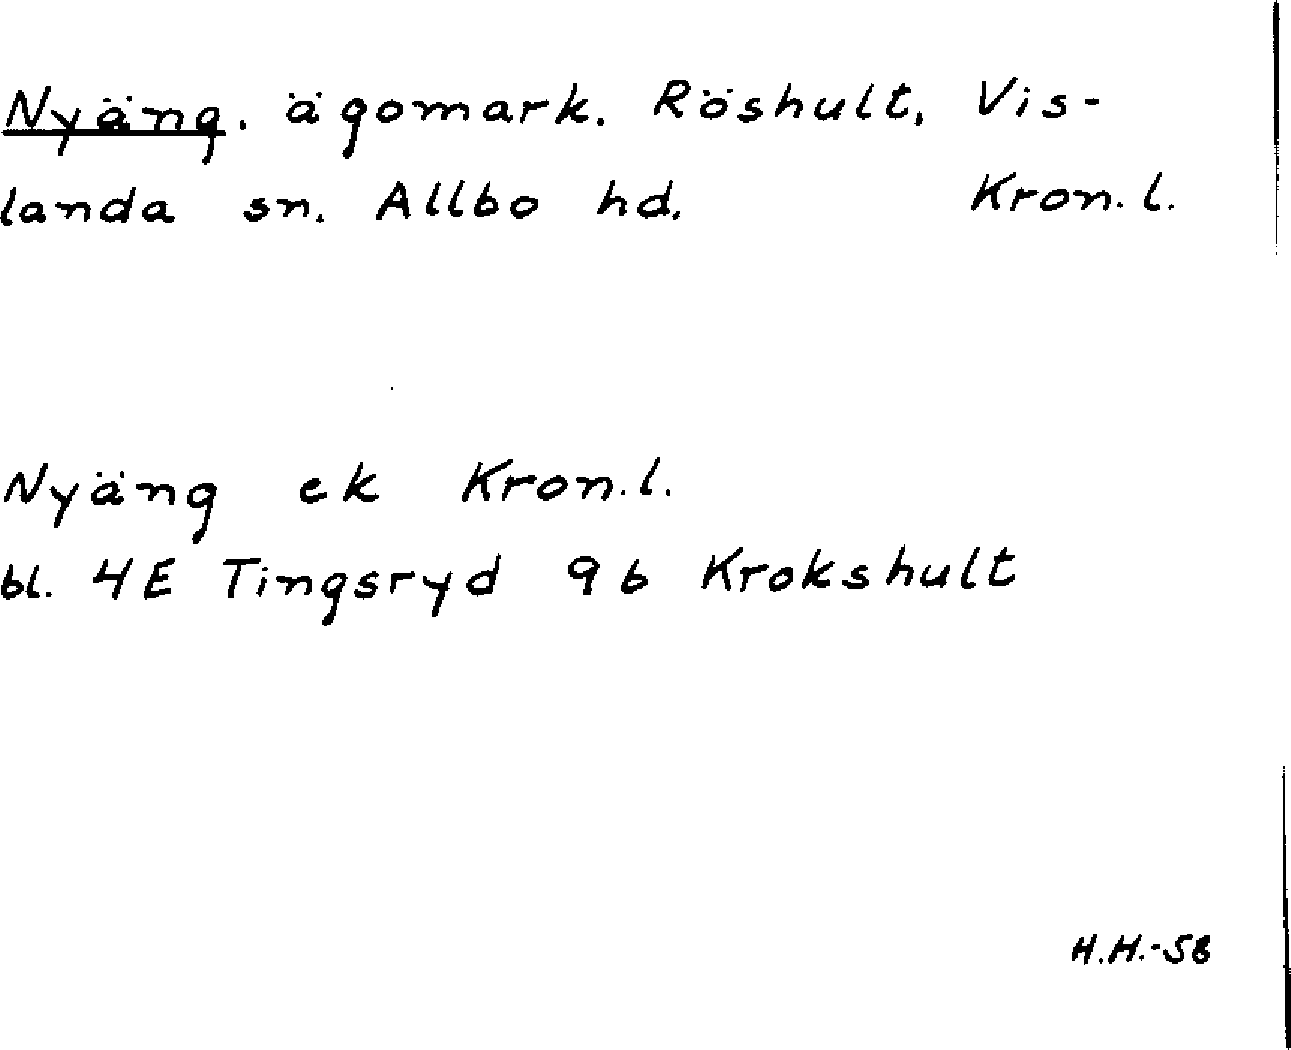 Nyäng. ägomark. Röshult, Vis-
landa sn. Allbo hd. Kron. l.
Nyäng ek Kron. l.
bl. 4E Tingsryd 9b Krokshult
H.H.-58